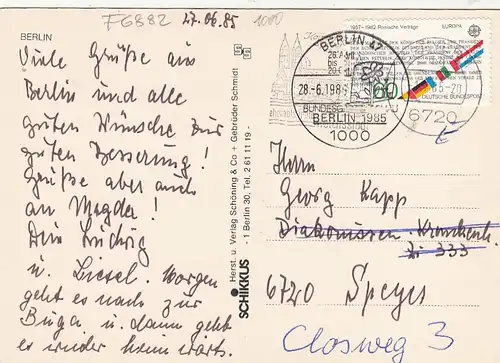 FG882 27.06.85 1000
BERLIN
Viele Grüße aus
Berlin und alle
guten Wünsche zur
guten Besserung!
Grüße aber auch
an Magda!
Dein Ludwig
u. Liesel. Morgen
geht es nach zur
Buga u. dann geht
es wieder heimwärts.
SCHIKKUS Herst. u. Verlag Schöning & Co + Gebrüder Schmidt
- 1 Berlin 30, Tel. 2 61 11 19 -
1957-1982 Römische Verträge EUROPA
60
DEUTSCHE BUNDESPOST
BERLIN 47
28.-6.198
BUNDESG
BERLIN 1985
1000
6720
Herrn
Georg Kapp
Diakonissen-Krankenh.
Zi 333
6720 Speyer
Closweg 3